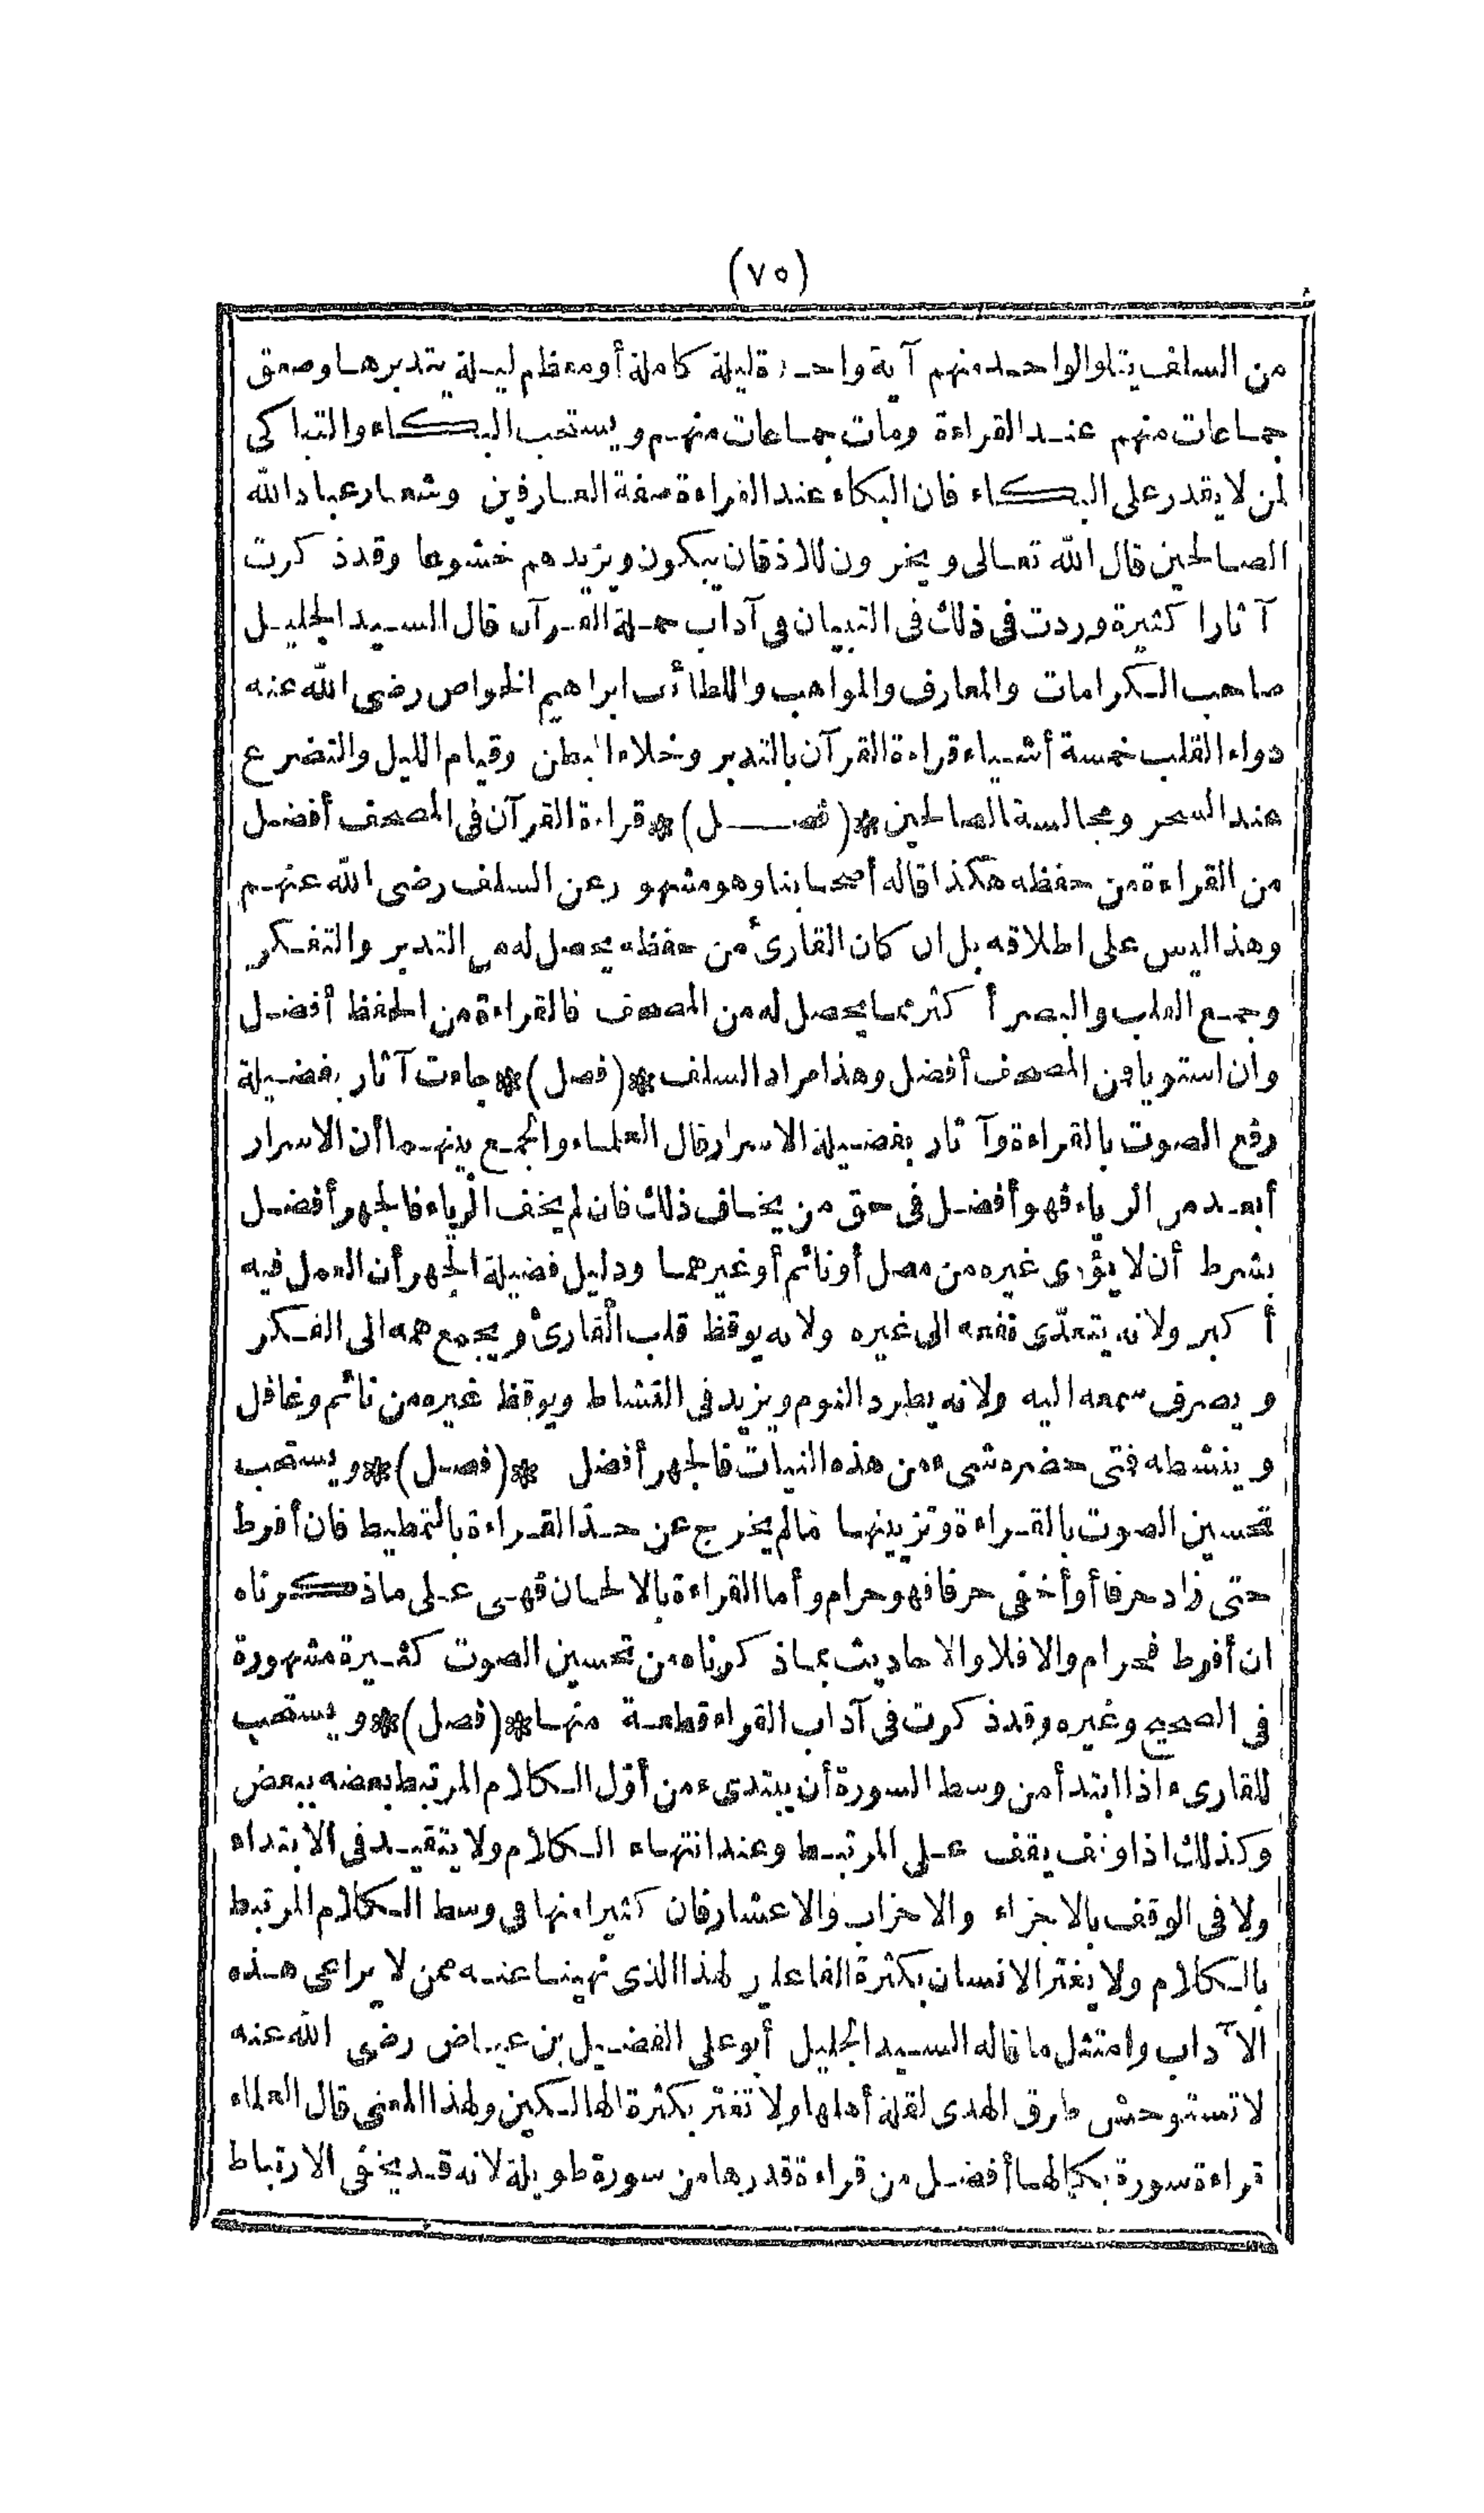 (٧٥)
من السلف يتلو الواحد منهم آية واحدة ليلة كاملة أو معظم ليلة يتدبرها وصعق
جماعات منهم عند القراءة ومات جماعات منهم ويستحب البكاء والتباكى
لمن لا يقدر على البكاء فان البكاء عند القراءة صفة العارفين وشعار عباد الله
الصالحين قال الله تعالى ويخرون للاذقان يبكون ويزيدهم خشوعا وقد ذكرت
آثارا كثيرة وردت فى ذلك فى التبيان فى آداب حملة القرآن قال السيد الجليل
صاحب الكرامات والمعارف والمواهب واللطائف ابراهيم الخواص رضى الله عنه
دواء القلب خمسة أشياء قراءة القرآن بالتدبر وخلاء البطن وقيام الليل والتضرع
عند السحر ومجالسة الصالحين *(فصل)* قراءة القرآن فى المصحف أفضل
من القراءة من حفظه هكذا قاله أصحابنا وهو مشهور عن السلف رضى الله عنهم
وهذا ليس على اطلاقه بل ان كان القارئ من حفظه يحصل له من التدبر والتفكر
وجمع القلب والبصر أكثر مما يحصل له من المصحف فالقراءة من الحفظ أفضل
وان استويا فمن المصحف أفضل وهذا مراد السلف *(فصل)* جاءت آثار بفضيلة
رفع الصوت بالقراءة وآثار بفضيلة الاسرار قال العلماء والجمع بينهما أن الاسرار
أبعد من الرياء فهو أفضل فى حق من يخاف ذلك فان لم يخف الرياء فالجهر أفضل
بشرط أن لا يؤذى غيره من مصل أو نائم أو غيرهما ودليل فضيلة الجهر أن العمل فيه
أكبر ولانه يتعدّى نفعه الى غيره ولانه يوقظ قلب القارئ ويجمع همه الى الفكر
ويصرف سمعه اليه ولانه يطرد النوم ويزيد فى النشاط ويوقظ غيره من نائم وغافل
وينشطه فمتى حضره شىء من هذه النيات فالجهر أفضل *(فصل)* ويستحب
تحسين الصوت بالقراءة وتزيينها ما لم يخرج عن حدّ القراءة بالتمطيط فان أفرط
حتى زاد حرفا أو أخفى حرفا فهو حرام وأما القراءة بالالحان فهى على ما ذكرناه
ان أفرط فحرام والا فلا والاحاديث بما ذكرناه من تحسين الصوت كثيرة مشهورة
فى الصحيح وغيره وقد ذكرت فى آداب القراء قطعة منها *(فصل)* ويستحب
للقارىء اذا ابتدأ من وسط السورة أن يبتدىء من أوّل الكلام المرتبط بعضه ببعض
وكذلك اذا وقف يقف على المرتبط وعند انتهاء الكلام ولا يتقيد فى الابتداء
ولا فى الوقف بالاجزاء والاحزاب والاعشار فان كثيرا منها فى وسط الكلام المرتبط
بالكلام ولا يغتر الانسان بكثرة الفاعلين لهذا الذى نهينا عنه ممن لا يراعى هذه
الآداب وامتثل ما قاله السيد الجليل أبو على الفضيل بن عياض رضى الله عنه
لا تستوحش طرق الهدى لقلة أهلها ولا تغتر بكثرة الهالكين ولهذا المعنى قال العلماء
قراءة سورة بكمالها أفضل من قراءة قدرها من سورة طويلة لانه قد يخفى الارتباط